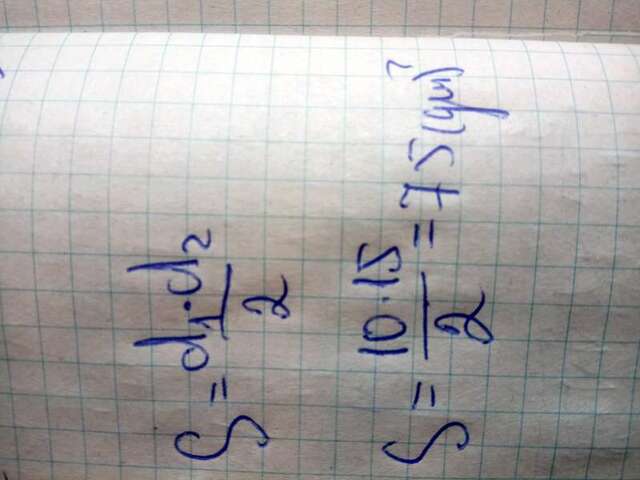 S = d₁·d₂/2
S = 10·15/2 = 75 (дм²)